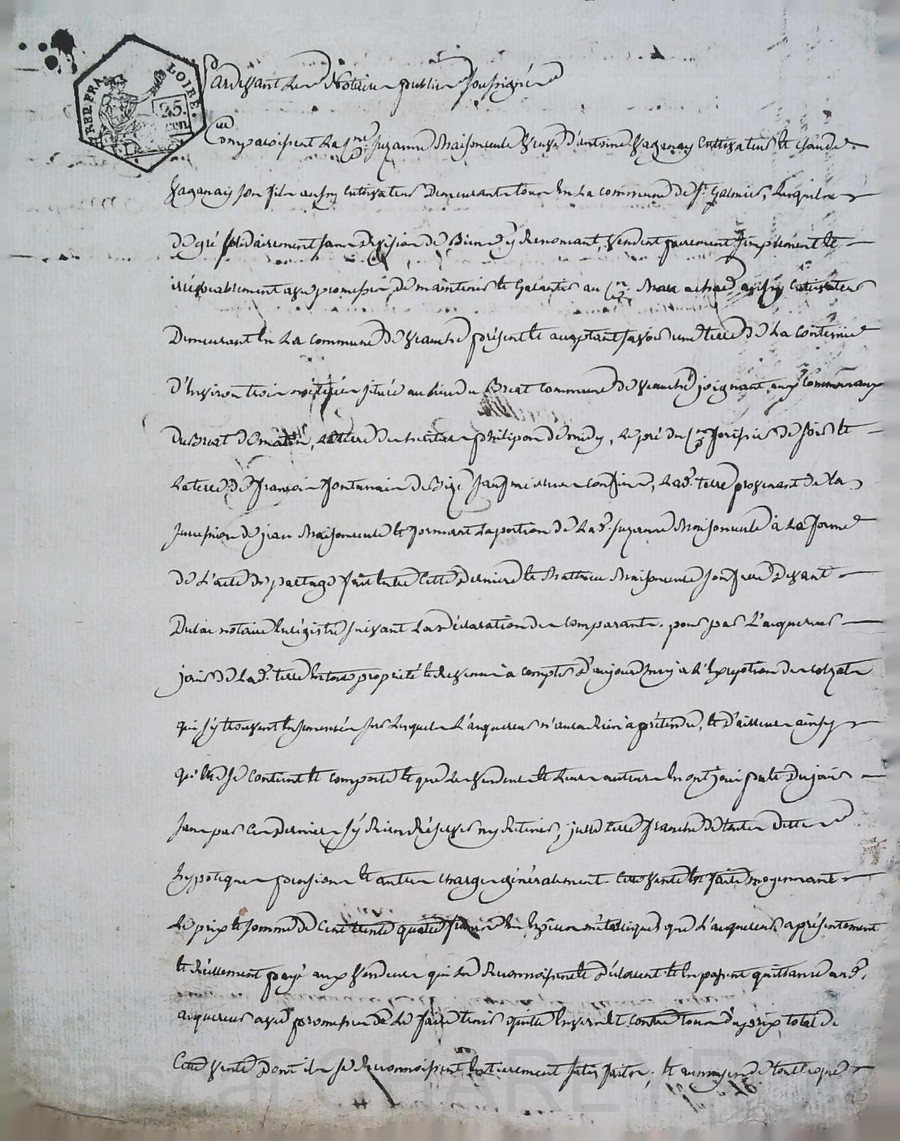 REP. FRA. LOIRE.
25. cen
Pardevant Les Notaires publics soussignés
Comparoissent La Cne Suzanne Maisonneule Veuve d'antoine Vaganay Cultivateur et Claude
Vaganay son fils aussy Cultivateur Demeurants tous En La commune de St. Galmier, Lesquels
de gré solidairement sans Division de Biens y Renoncant, Vendent purement simplement et
irrévocablement avec promesse de maintenir et Garantir au Cen aussy Cultivateur
Demeurant En La commune de Veauche présent et acceptant savoir une terre de La Contenue
D'Environ trois située au lieu du Breat Commune de Veauche joignant aux Communaux
Du Breat de matin, La terre des héritiers philipon de midy, Le pré du Cen de soir et
La terre de françois fontanais de Bize sauf meilleurs confins, Lad. terre provenant de La
succession de jean Maisonneule et formant La portion de Lad. suzanne Maisonneule à La forme
de L'acte de partage fait Entre Cette Derniere et Mathieu Maisonneule son frere Devant
Dulac notaire Enregistré suivant La Déclaration des comparants. pour par L'acquereur
jouir de Lad. terre En toute propriété et Revenus à compter D'aujourd'huy à L'Exception des colzats
qui s'y trouvent Ensemencés sur Lesquels L'acquereur n'aura Rien à prétendre, et D'ailleurs ainsy
qu'elle se Contient et comporte et que Les Vendeurs et Leurs auteurs En ont joui pu et Du jouir
sans par Ces Derniers s'y Rien Réserver ny Retenir, susd. terre franche de toutes Dettes
hypoteques pensions et autres charges généralement. Cette Vente est faite moyennant
Le prix et somme de Cent trente quatre francs En Espèces métaliques que L'acquereur a présentement
et Réellement payé aux Vendeurs qui Le Reconnoissent et Déclarent et En passent quittance aud.
acquereur avec promesse de Le faire tenir quitte Envers et Contre tous du prix total de
Cette Vente Dont ils se Reconnoissent Entierement satisfaits; et au moyen de tout ce que